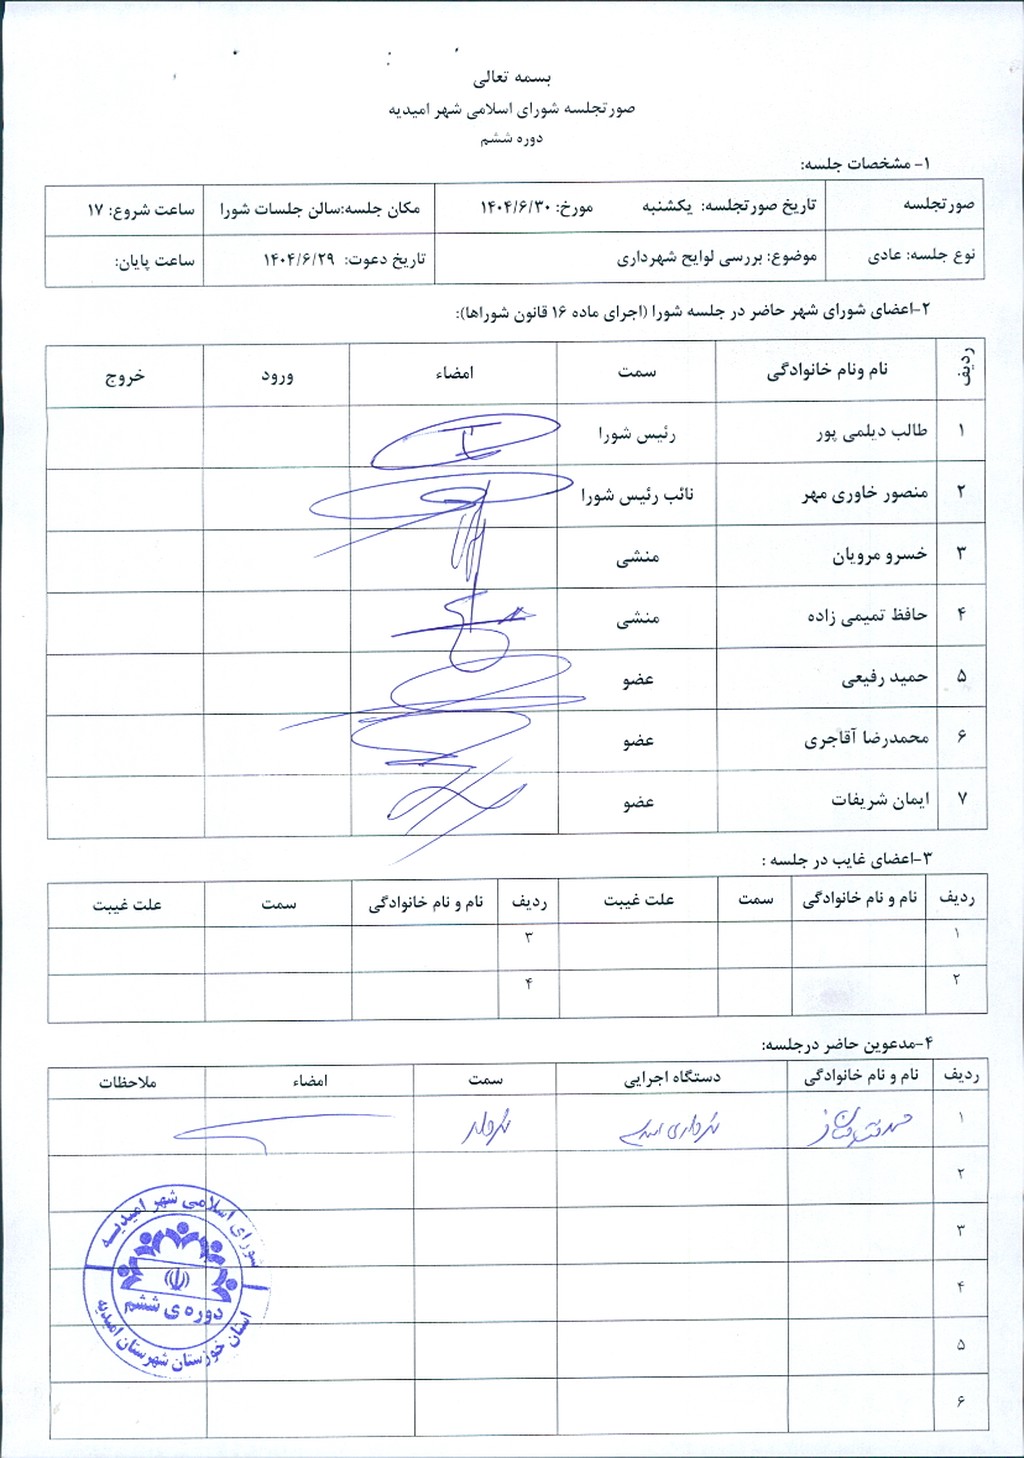 بسمه تعالی
صورتجلسه شورای اسلامی شهر امیدیه
دوره ششم
۱- مشخصات جلسه:
صورتجلسه تاریخ صورتجلسه: یکشنبه مورخ: ۱۴۰۴/۶/۳۰ مکان جلسه:سالن جلسات شورا ساعت شروع: ۱۷
نوع جلسه: عادی موضوع: بررسی لوایح شهرداری تاریخ دعوت: ۱۴۰۴/۶/۲۹ ساعت پایان:
۲-اعضای شورای شهر حاضر در جلسه شورا (اجرای ماده ۱۶ قانون شوراها):
ردیف نام ونام خانوادگی سمت امضاء ورود خروج
۱ طالب دیلمی پور رئیس شورا
۲ منصور خاوری مهر نائب رئیس شورا
۳ خسرو مرویان منشی
۴ حافظ تمیمی زاده منشی
۵ حمید رفیعی عضو
۶ محمدرضا آقاجری عضو
۷ ایمان شریفات عضو
۳-اعضای غایب در جلسه :
ردیف نام و نام خانوادگی سمت علت غیبت ردیف نام و نام خانوادگی سمت علت غیبت
۱ ۳
۲ ۴
۴-مدعوین حاضر درجلسه:
ردیف نام و نام خانوادگی دستگاه اجرایی سمت امضاء ملاحظات
۱ شهرداری امیدیه شهردار
۲
۳
۴
۵
۶
شورای اسلامی شهر امیدیه
دوره ی ششم
استان خوزستان شهرستان امیدیه